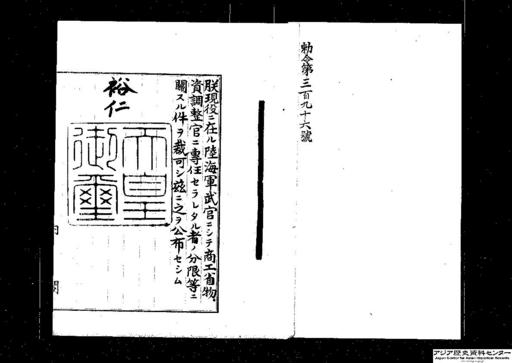 勅令第三百九十六號
朕現役ニ在ル陸海軍武官ニシテ商工省物
資調整官ニ專任セラレタル者ノ分限等ニ
關スル件ヲ裁可シ茲ニ之ヲ公布セシム
裕仁
天皇
御璽
内閣
アジア歴史資料センター
Japan Center for Asian Historical Records